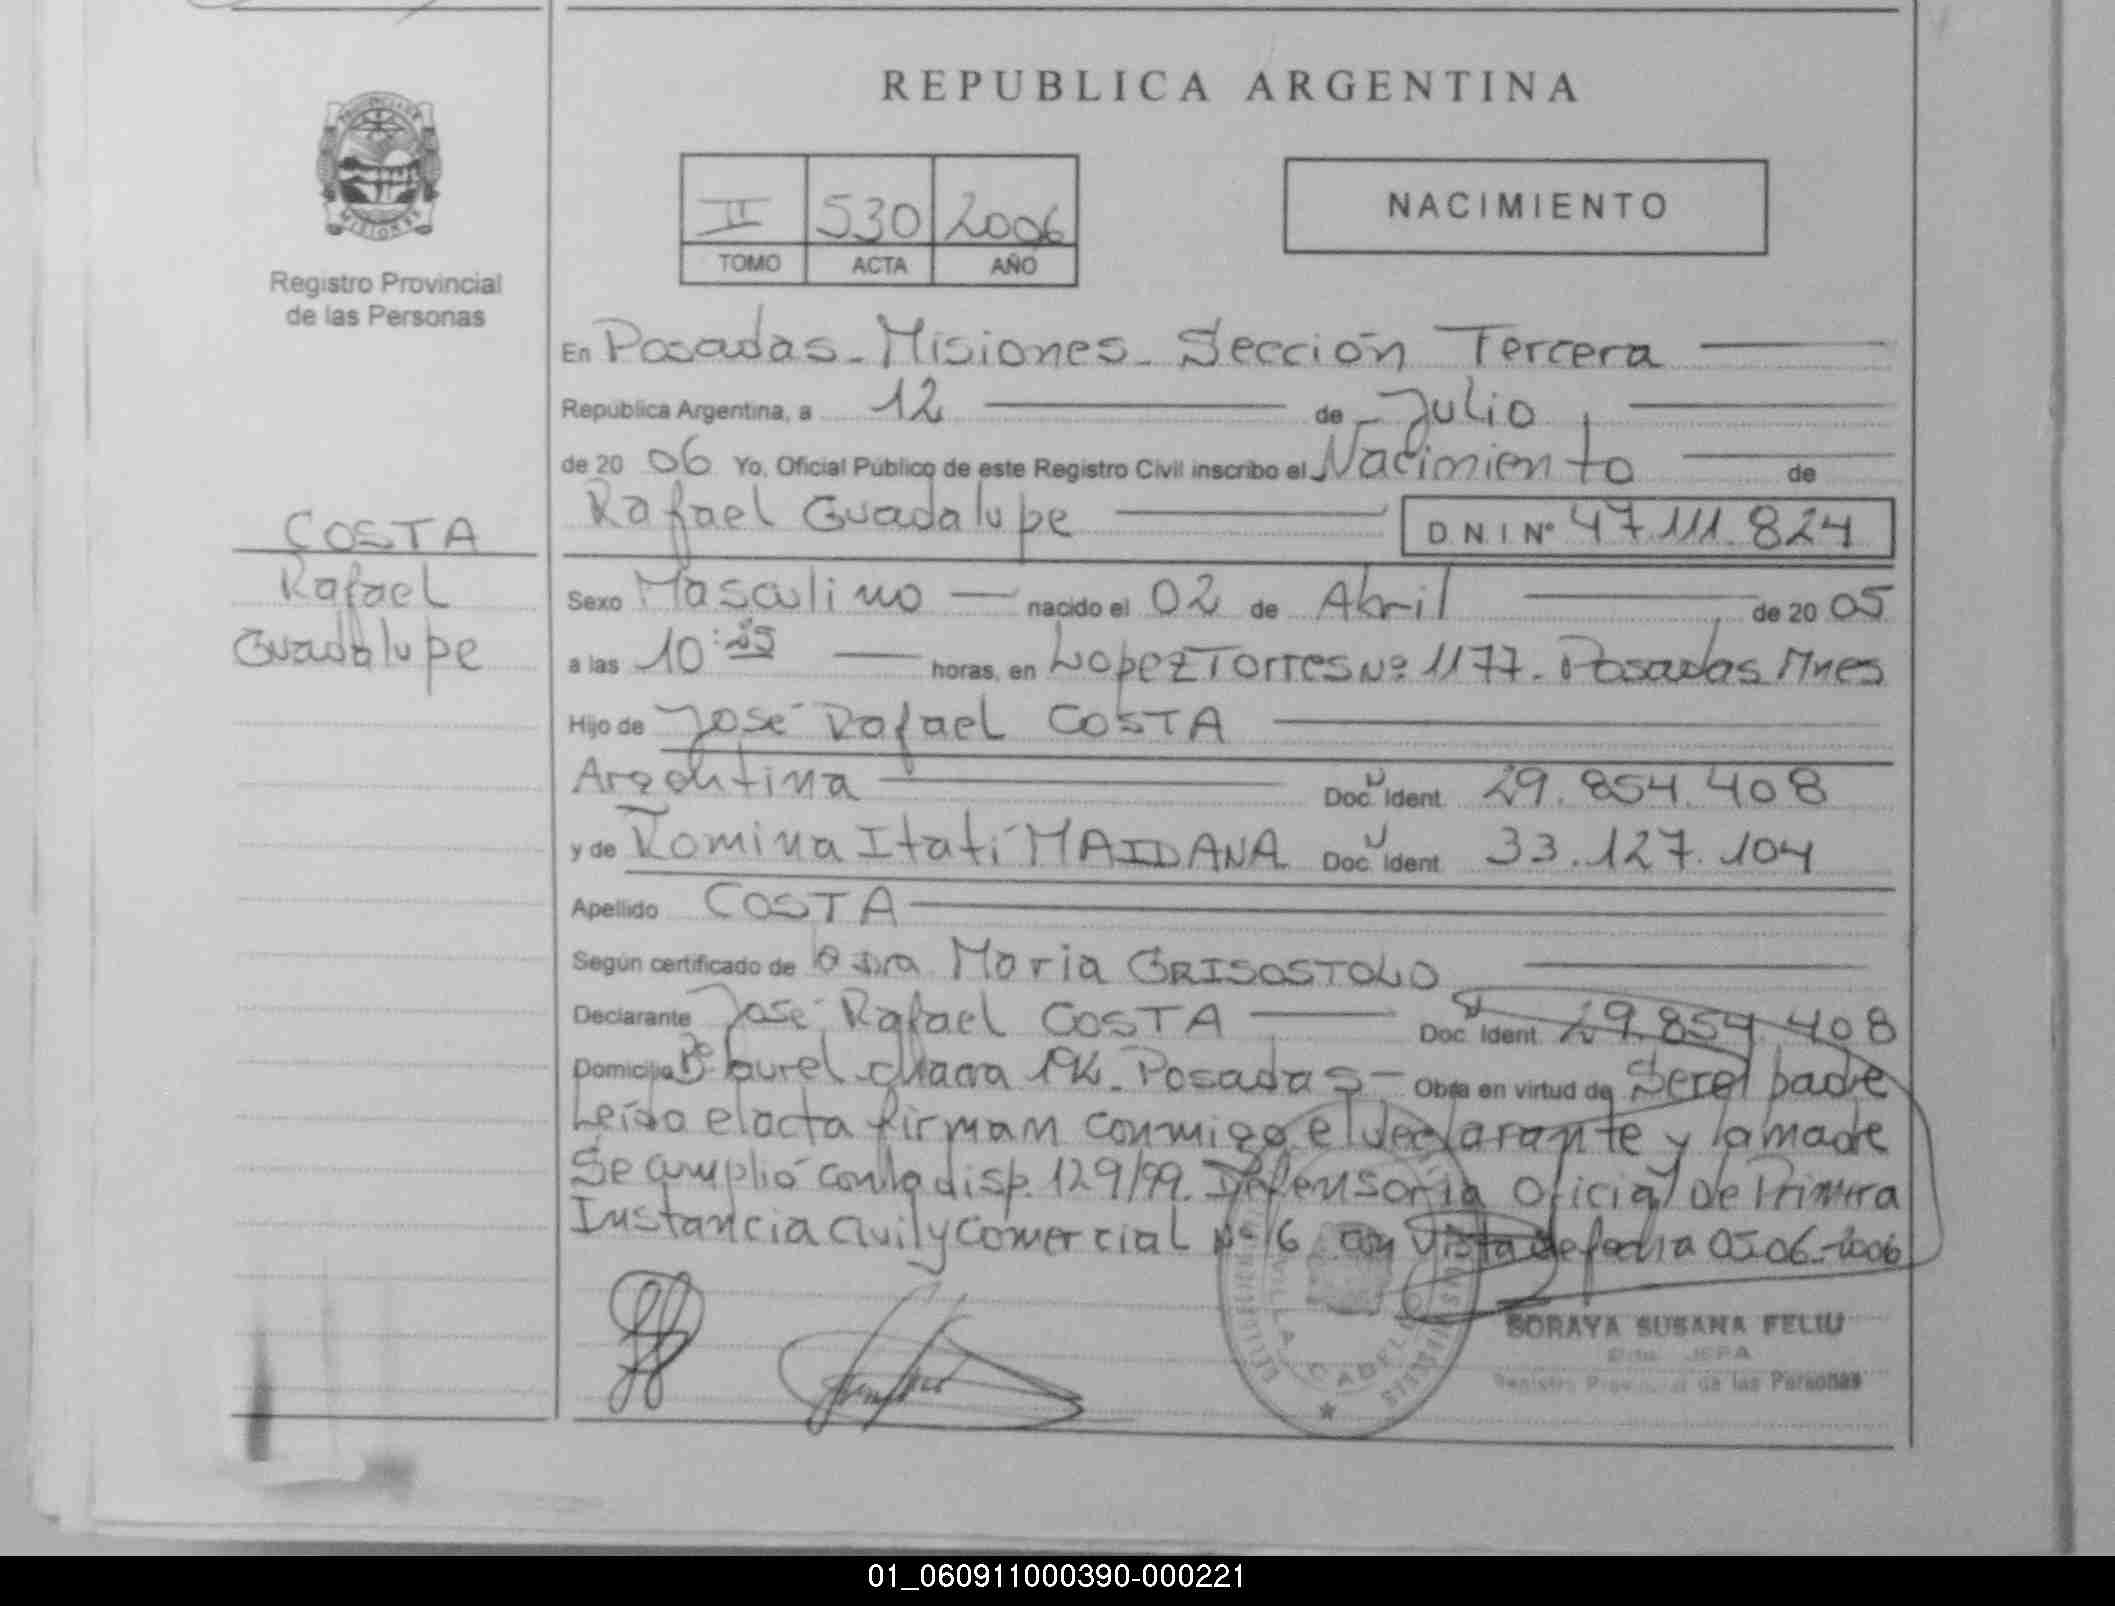 REPUBLICA ARGENTINA
NACIMIENTO
II 530 2006
TOMO ACTA AÑO
Registro Provincial
de las Personas
En Posadas - Misiones - Sección Tercera
República Argentina, a 12 de Julio
de 20 06 Yo, Oficial Público de este Registro Civil inscribo el Nacimiento de
Rafael Guadalupe D.N.I Nº 47.111.824
COSTA
Rafael
Guadalupe
Sexo Masculino nacido el 02 de Abril de 20 05
a las 10:25 horas, en Lopez Torres Nº 1177. Posadas Mnes
Hijo de José Rafael COSTA
Argentina Doc. Ident. 29.854.408
y de Romina Itatí MAIDANA Doc. Ident. 33.127.104
Apellido COSTA
Según certificado de Maria GRISOSTOLO
Declarante José Rafael COSTA Doc. Ident. 29.854.408
Domicilio Bº Laurel chacra Posadas - Obra en virtud de Ser el padre
Leída el acta firman conmigo el declarante y la madre
Se amplió con la disp. 129/99. Defensoria Oficial de Primera
Instancia Civil y Comercial Nº 6 Vista de fecha 05-06-2006
VILLA CABELLO
MISIONES
SORAYA SUSANA FELIU
JEFA
Registro Provincial de las Personas
01_060911000390-000221